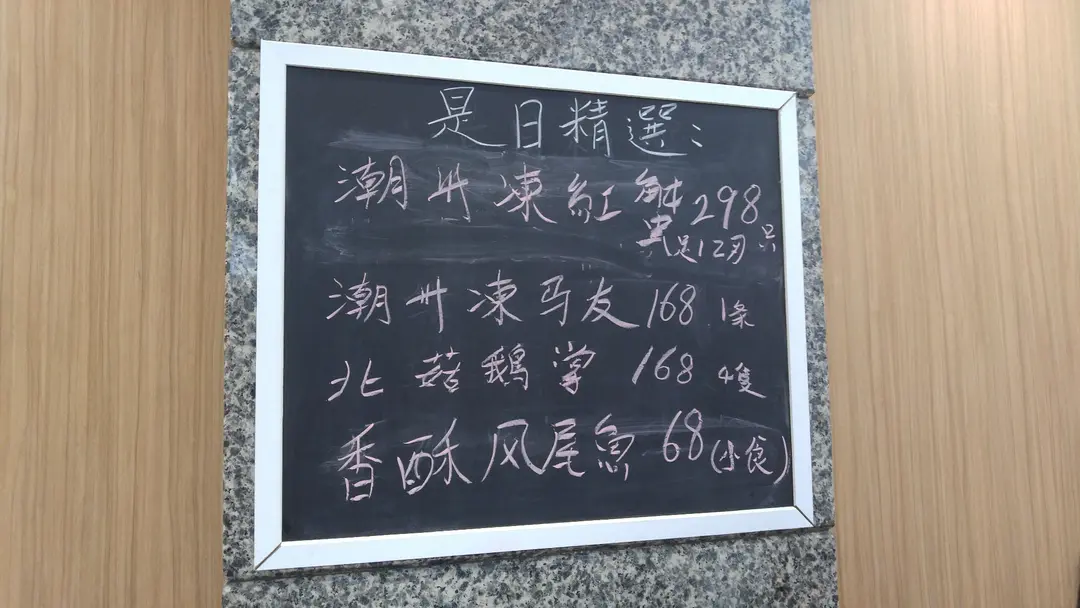 是日精選：
潮州凍紅蟹 298
足12刃 只
潮州凍马友 168 1条
北菇鵝掌 168 4隻
香酥风尾魚 68 (小食)